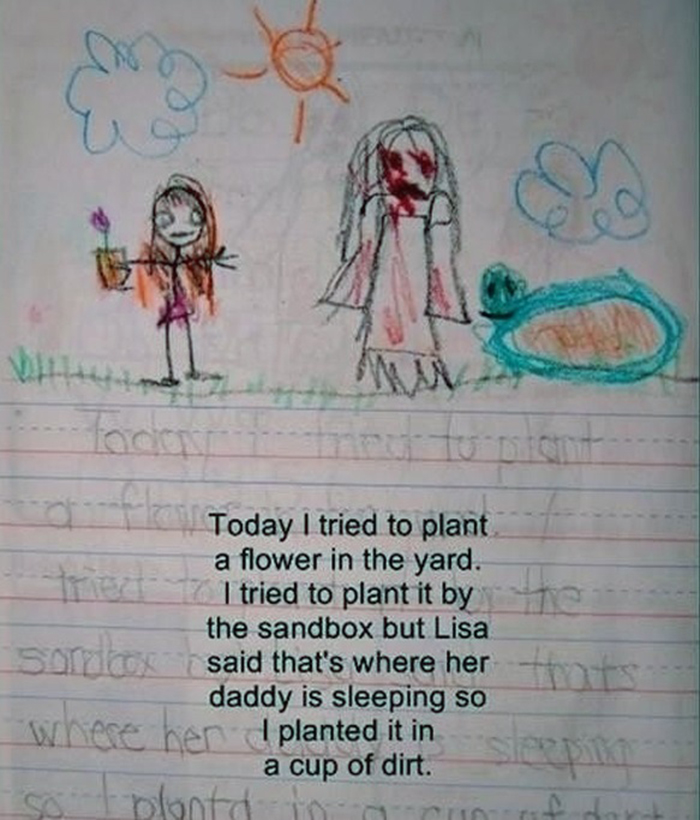 Today I tried to plant
a flower
tried to the
sandbox thats
where her daddy is sleeping
so I plantd in a cup of dirt
Today I tried to plant
a flower in the yard.
I tried to plant it by
the sandbox but Lisa
said that's where her
daddy is sleeping so
I planted it in
a cup of dirt.